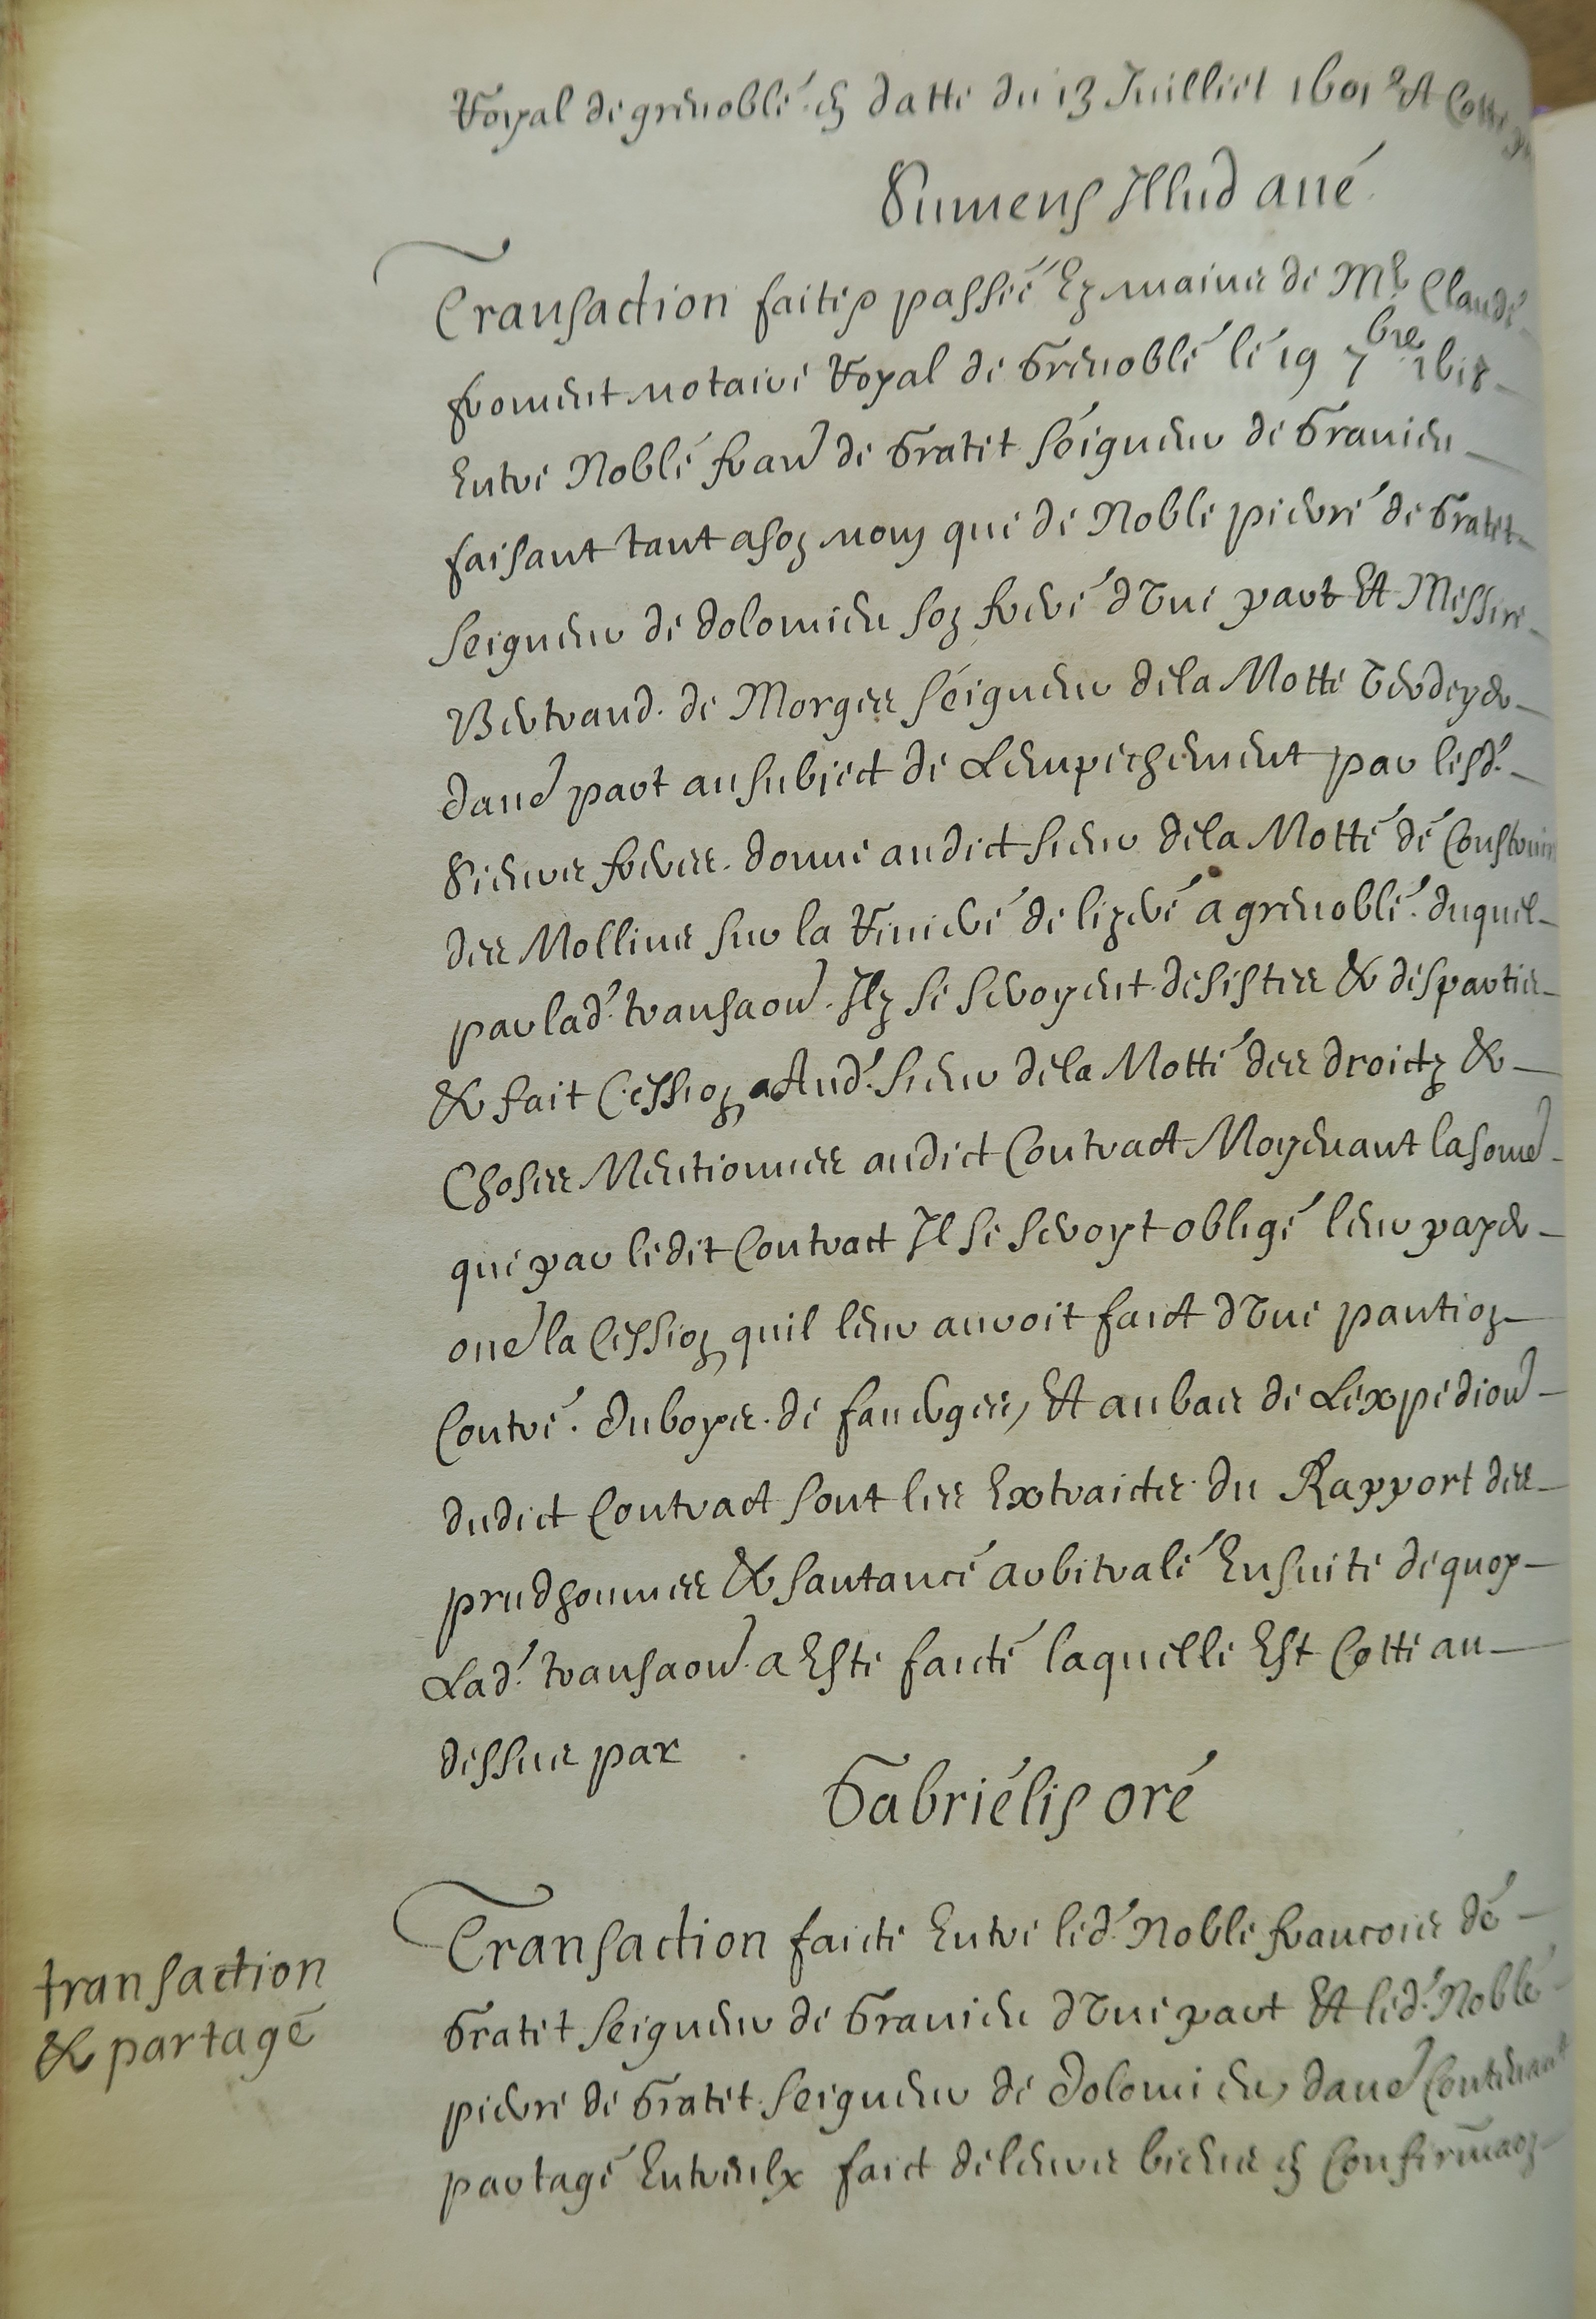 Royal de grenoble en datte du 13 Juilliet 1601 Et Cotté
Sumens Illud aué
Transaction faite & passée Ez mains de Me Claude
froment notaire Royal de Grenoble le 19 7bre 1618
Entre Noble frans de Gratet Seigneur de Granieu
faisant tant a son nom que de Noble pierre de Gratet
Seigneur de dolomieu son frere d'Une part Et Messire
Bertrand de Morges Seigneur dela Motte Verdeyer
daue part au subject de Lempeschement par lesd.
Sieurs freres donné audict sieur dela Motte de Construire
des Mollins sur la Riuiere de lizere a grenoble duquel
par lad. transaon Ilz se seroyent desistes & despartis
& fait Cession Aud. sieur dela Motte des droictz &
Choses Mentionnes audict Contract Moyenant la some
que par ledit Contract Il se seroyt obligé leur payer
oue la Cession quil leur auroit faict d'Une pention
Contre. Duboys de fauerges, Et au bas de Lexpedion
dudict Contract sont les Extraictes du Rapport des
prudhommes & santance arbitrale Ensuite dequoy
Lad. transaon a Esté faicte laquelle Est Cotté au
dessus par
Gabriélis oré
transaction
& partage
Transaction faicte Entre led. Noble francois de
Gratet Seigneur de Granieu d'Une part Et led. Noble
pierre de Gratet Seigneur de Dolomieu, daue Contenant
partage Entreulx faict deleurs biens en Confirmaon